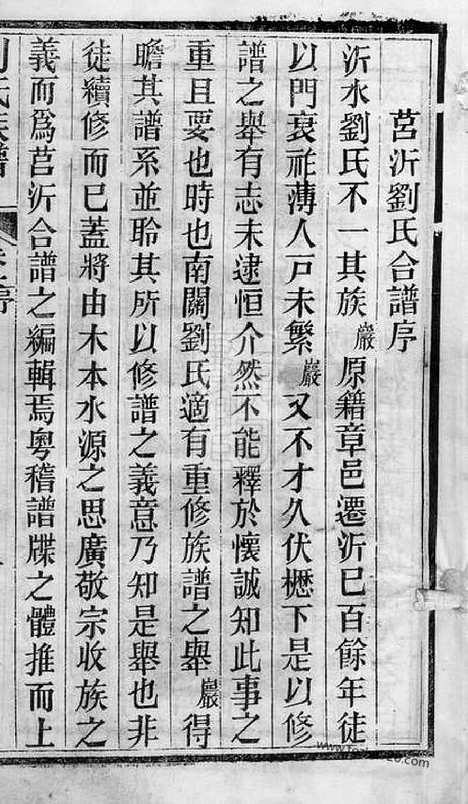 莒沂劉氏合譜序
沂水劉氏不一其族巖原籍章邑遷沂已百餘年徒
以門衰祚薄人戶未繁巖又不才久伏櫪下是以修
譜之舉有志未逮恒介然不能釋於懷誠知此事之
重且要也時也南關劉氏適有重修族譜之舉巖得
瞻其譜系並聆其所以修譜之義意乃知是舉也非
徒續修而已蓋將由木本水源之思廣敬宗收族之
義而為莒沂合譜之編輯焉粤稽譜牒之體推而上
氏族譜
序